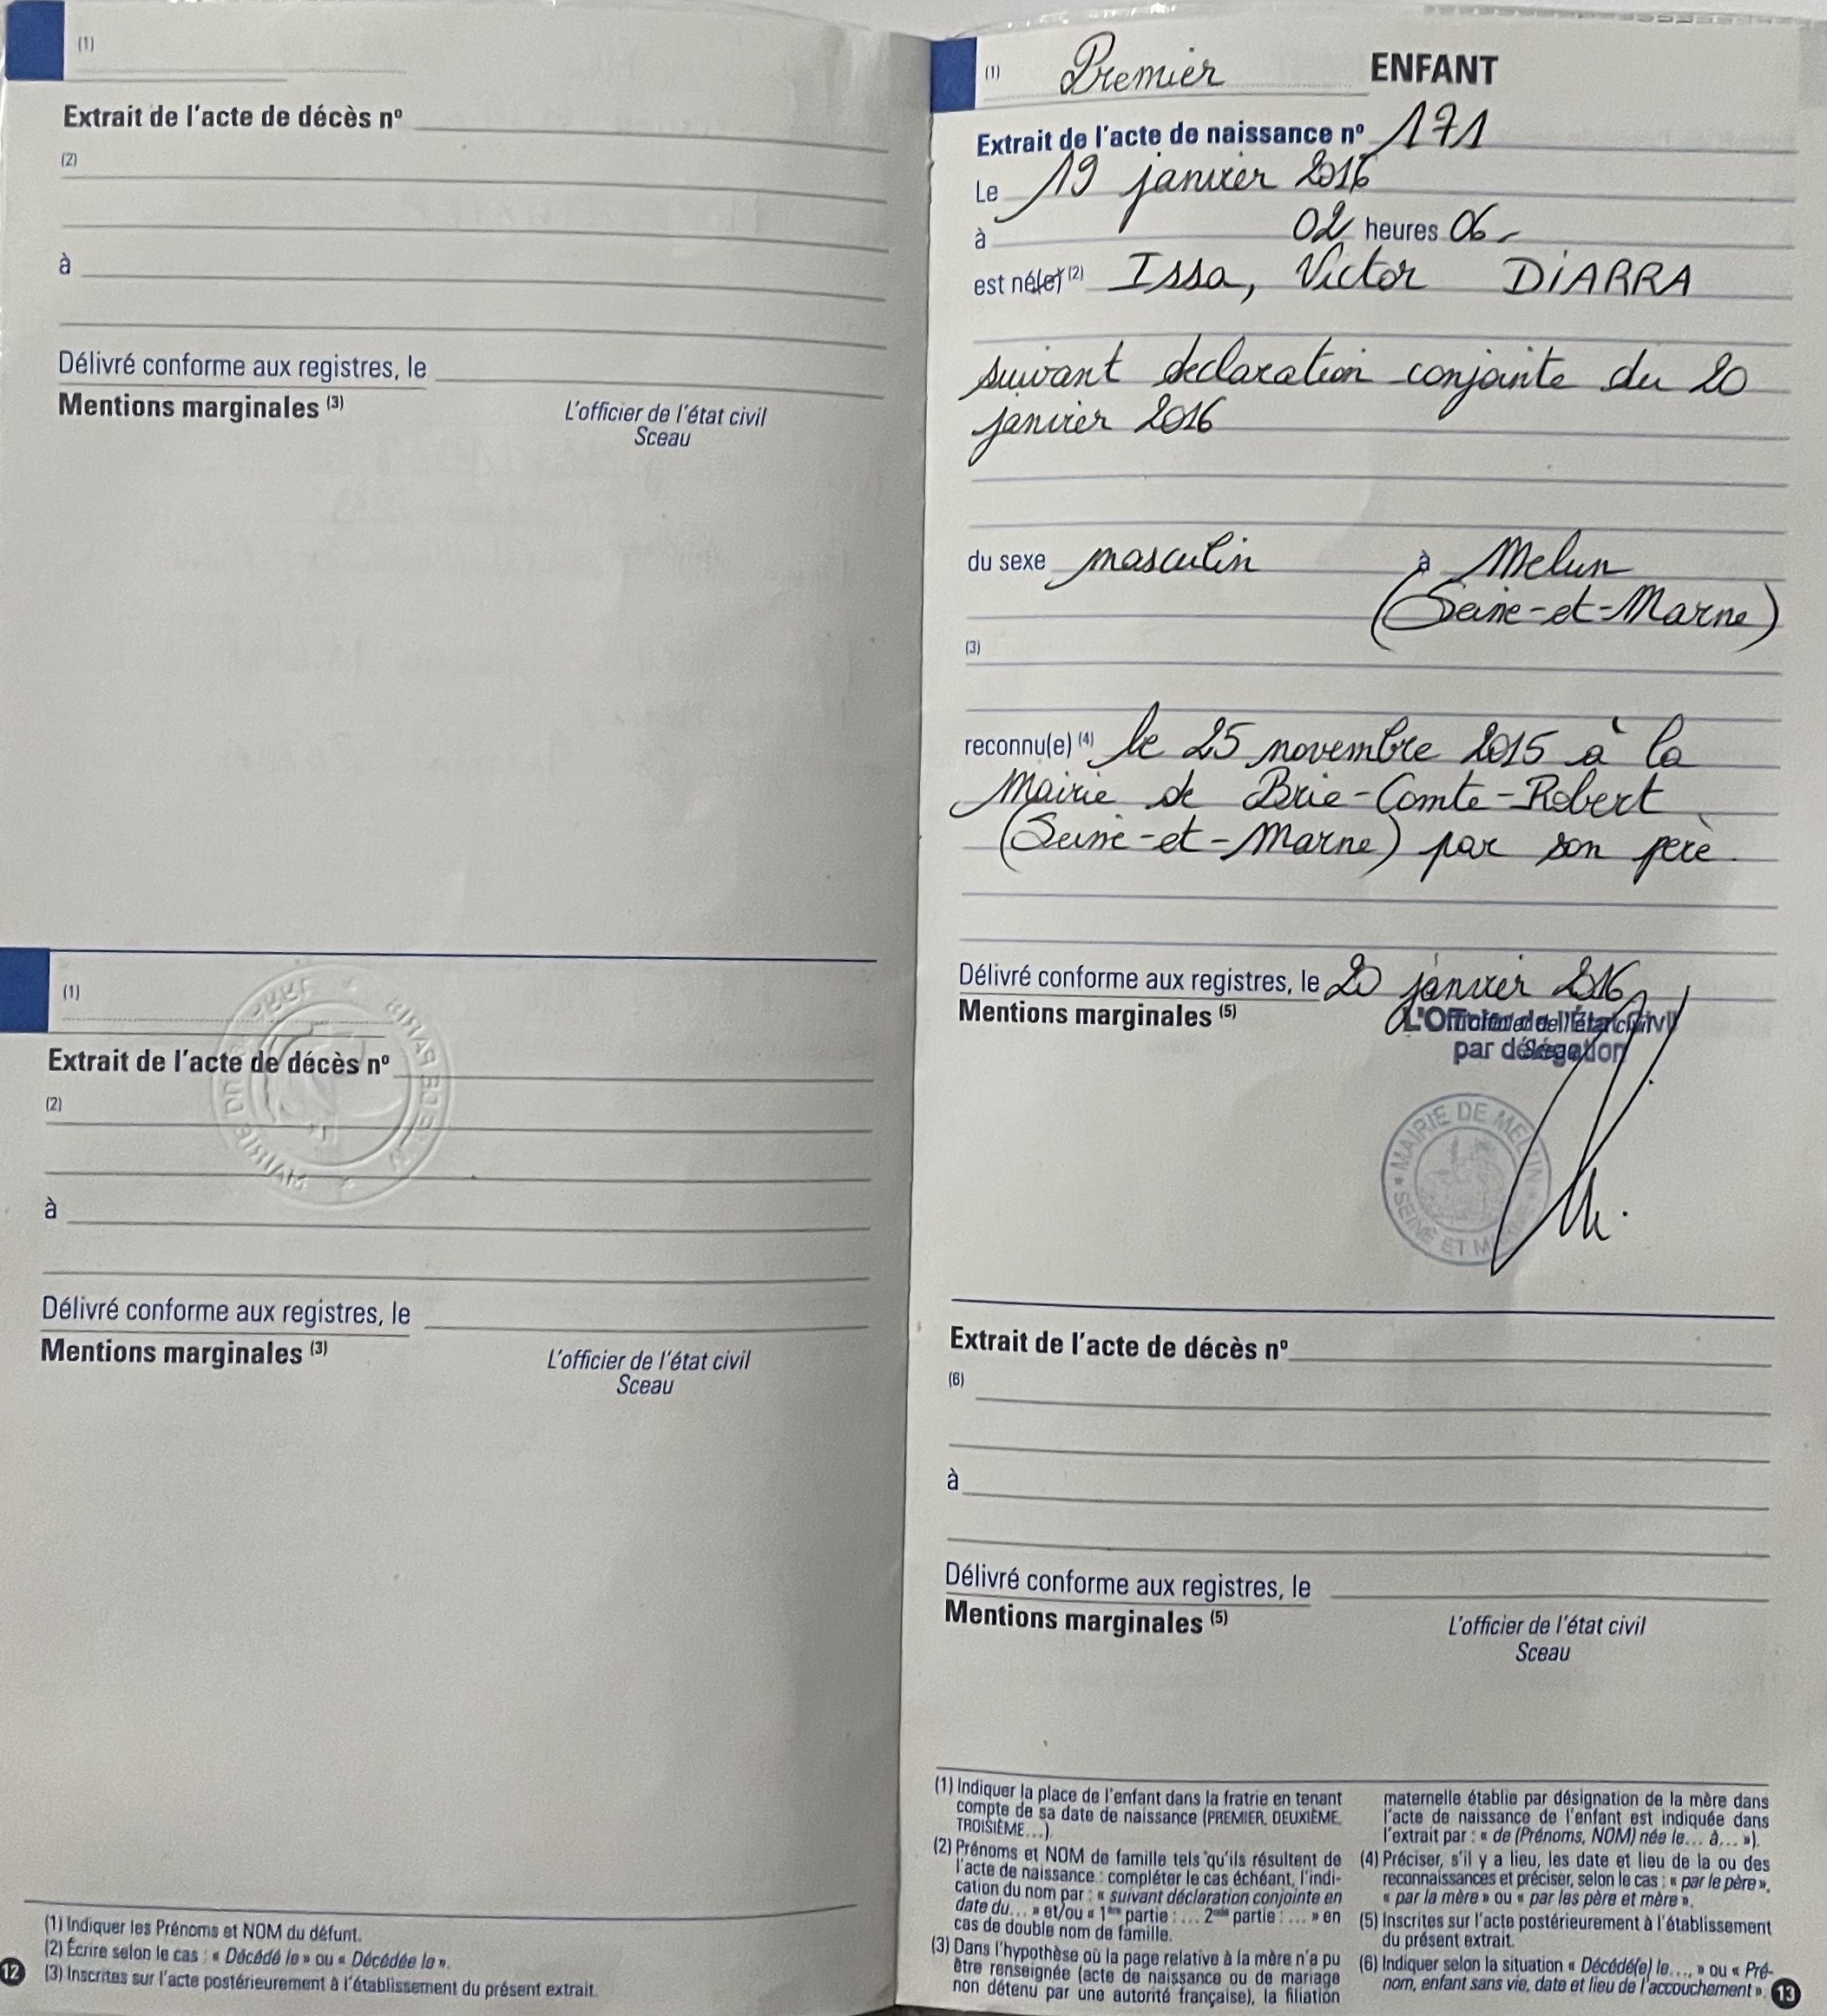 (1)
Extrait de l'acte de décès nº
(2)
à
Délivré conforme aux registres, le
Mentions marginales (3)
L'officier de l'état civil
Sceau
(1)
Extrait de l'acte de décès nº
(2)
à
Délivré conforme aux registres, le
Mentions marginales (3)
L'officier de l'état civil
Sceau
(1) Indiquer les Prénoms et NOM du défunt.
(2) Écrire selon le cas : « Décédé le » ou « Décédée le ».
(3) Inscrites sur l'acte postérieurement à l'établissement du présent extrait.
12
(1) Premier ENFANT
Extrait de l'acte de naissance nº 171
Le 19 janvier 2016
à 02 heures 06
est né(e) (2) Issa, Victor DIARRA
suivant declaration conjointe du 20
janvier 2016
du sexe masculin à Melun
(Seine-et-Marne)
(3)
reconnu(e) (4) le 25 novembre 2015 à la
Mairie de Brie-Comte-Robert
(Seine-et-Marne) par son père.
Délivré conforme aux registres, le 20 janvier 2016
Mentions marginales (5)
L'Officier de l'État Civil
par délégation
MAIRIE DE MELUN
SEINE ET MARNE
Extrait de l'acte de décès nº
(6)
à
Délivré conforme aux registres, le
Mentions marginales (5)
L'officier de l'état civil
Sceau
(1) Indiquer la place de l'enfant dans la fratrie en tenant
compte de sa date de naissance (PREMIER, DEUXIÈME,
TROISIÈME...).
(2) Prénoms et NOM de famille tels qu'ils résultent de
l'acte de naissance : compléter le cas échéant, l'indi-
cation du nom par : « suivant déclaration conjointe en
date du... » et/ou « 1ère partie : ... 2nde partie : ... » en
cas de double nom de famille.
(3) Dans l'hypothèse où la page relative à la mère n'a pu
être renseignée (acte de naissance ou de mariage
non détenu par une autorité française), la filiation
maternelle établie par désignation de la mère dans
l'acte de naissance de l'enfant est indiquée dans
l'extrait par : « de (Prénoms, NOM) née le... à... »).
(4) Préciser, s'il y a lieu, les date et lieu de la ou des
reconnaissances et préciser, selon le cas : « par le père »,
« par la mère » ou « par les père et mère ».
(5) Inscrites sur l'acte postérieurement à l'établissement
du présent extrait.
(6) Indiquer selon la situation « Décédé(e) le..., » ou « Pré-
nom, enfant sans vie, date et lieu de l'accouchement ».
13